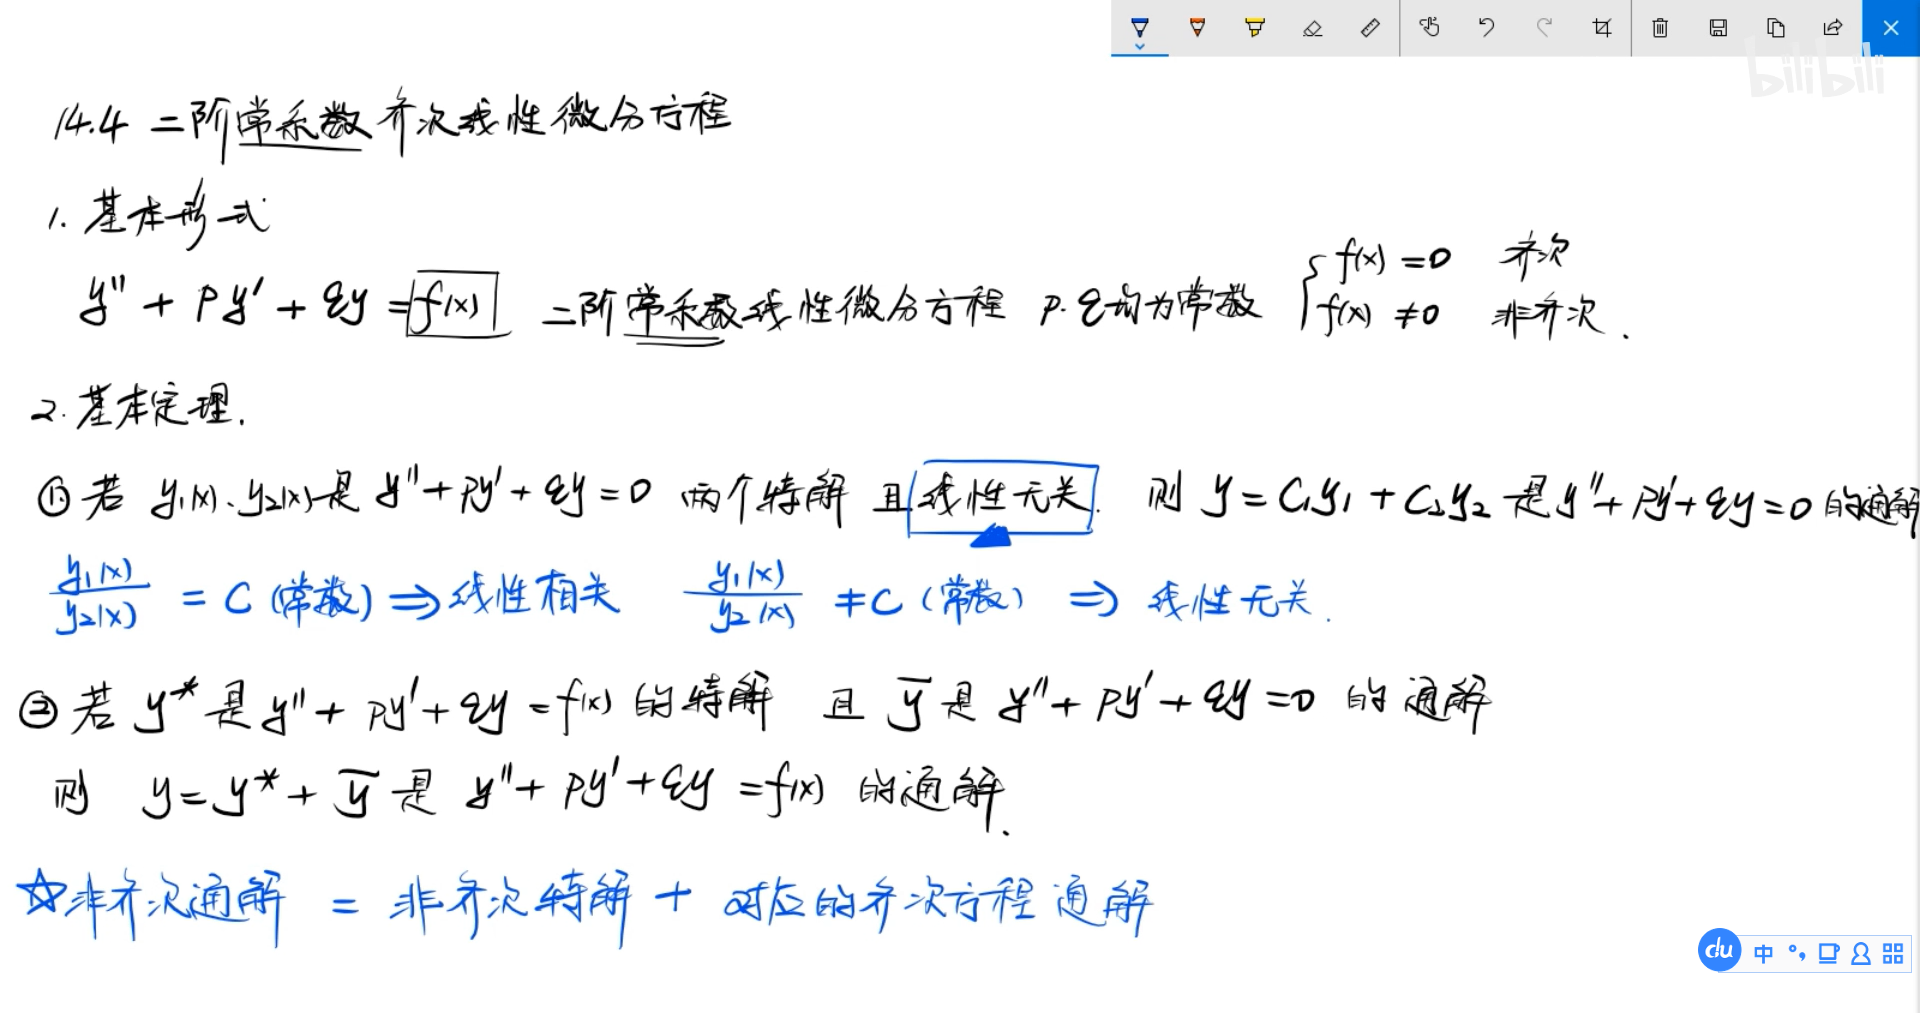 bilibili
14.4 二阶常系数齐次线性微分方程
1. 基本形式
y'' + py' + qy = f(x) 二阶常系数线性微分方程 p.q均为常数 { f(x) = 0 齐次
f(x) ≠ 0 非齐次.
2. 基本定理.
① 若 y₁(x)、y₂(x)是 y''+py'+qy=0 两个特解 且线性无关. 则 y = C₁y₁ + C₂y₂ 是 y''+py'+qy=0 的通解
y₁(x)/y₂(x) = C (常数) ⇒ 线性相关 y₁(x)/y₂(x) ≠ C (常数) ⇒ 线性无关.
② 若 y* 是 y''+py'+qy=f(x) 的特解 且 ȳ 是 y''+py'+qy=0 的通解
则 y=y*+ȳ 是 y''+py'+qy=f(x) 的通解.
☆非齐次通解 = 非齐次特解 + 对应的齐次方程通解
du 中